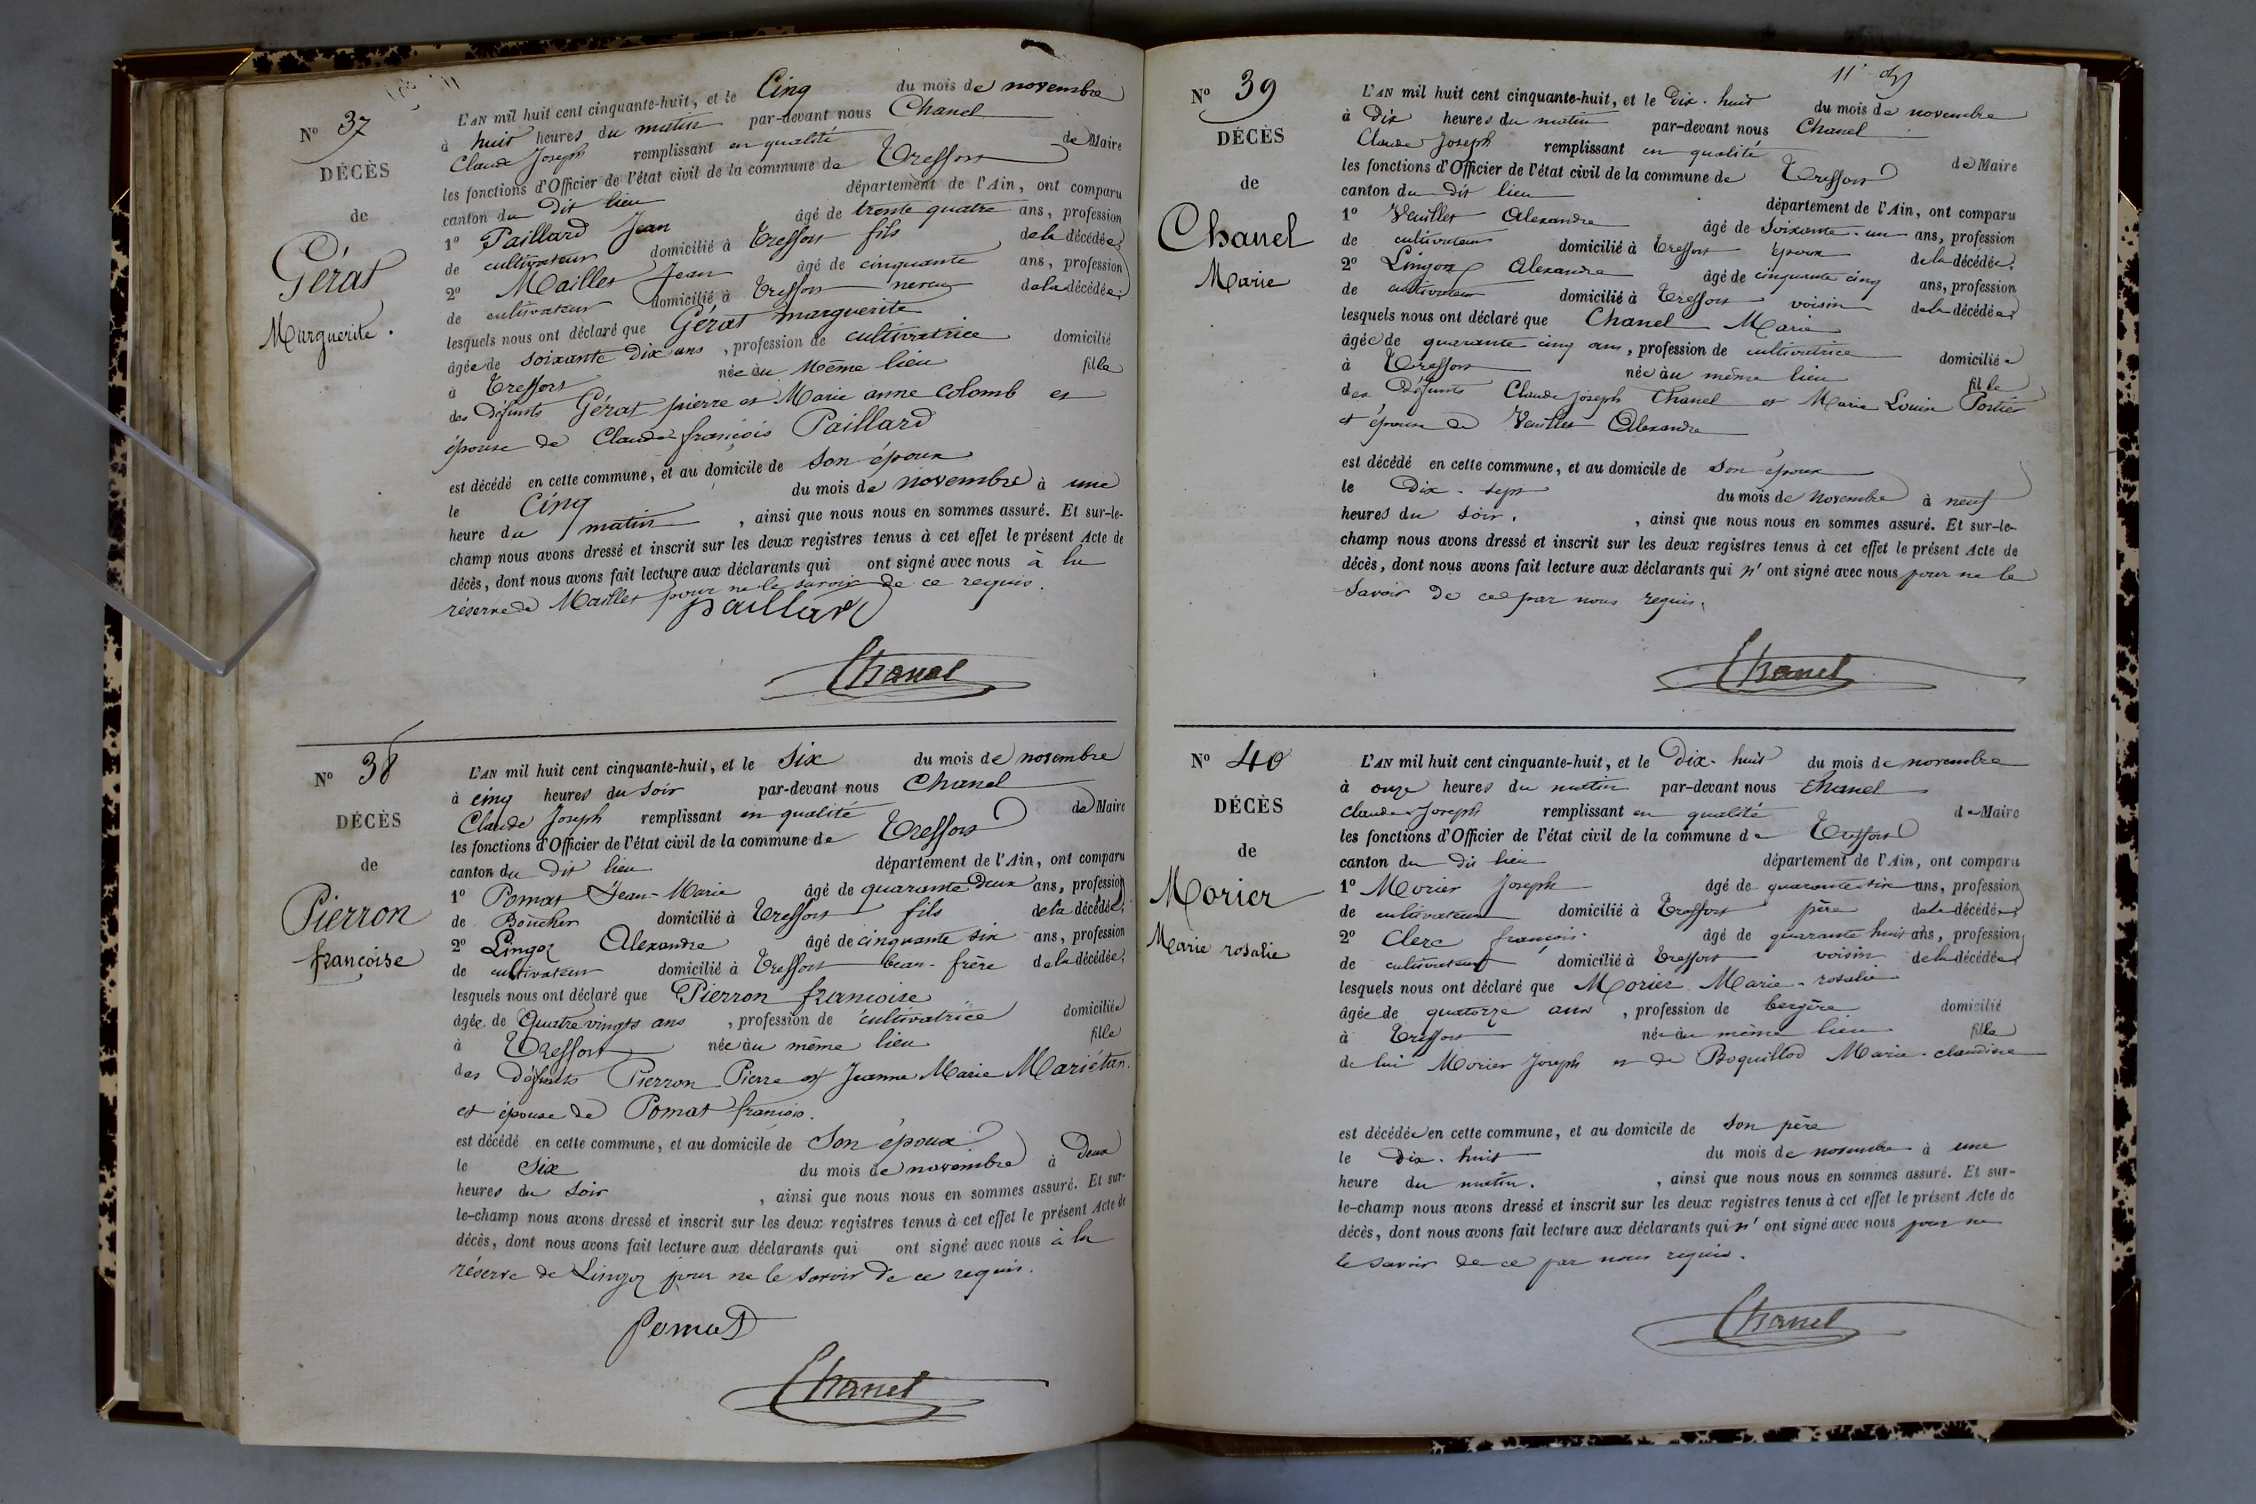 N° 37
DÉCÈS
de
Gérat
Marguerite.
L'AN mil huit cent cinquante-huit, et le Cinq du mois de novembre
à huit heures du matin par-devant nous Chanel
Claude Joseph remplissant en qualité de Maire
les fonctions d'Officier de l'état civil de la commune de Treffort
canton du dit lieu département de l'Ain, ont comparu
1° Paillard Jean âgé de trente quatre ans, profession
de cultivateur domicilié à Treffort fils de la décédée,
2° Maillet Jean âgé de cinquante ans, profession
de cultivateur domicilié à Treffort neveu de la décédée,
lesquels nous ont déclaré que Gérat marguerite
âgée de soixante dix ans, profession de cultivatrice domicilié
à Treffort née au même lieu fille
des défunts Gérat pierre et Marie anne Colomb et
épouse de Claude françois Paillard
est décédé en cette commune, et au domicile de son époux
le Cinq du mois de novembre à une
heure du matin, ainsi que nous nous en sommes assuré. Et sur-le-
champ nous avons dressé et inscrit sur les deux registres tenus à cet effet le présent Acte de
décès, dont nous avons fait lecture aux déclarants qui ont signé avec nous à la
réserve de Maillet pour ne le savoir de ce requis.
paillard
Chanel
N° 38
DÉCÈS
de
Pierron
françoise
L'AN mil huit cent cinquante-huit, et le Six du mois de novembre
à cinq heures du soir par-devant nous Chanel
Claude Joseph remplissant en qualité de Maire
les fonctions d'Officier de l'état civil de la commune de Treffort
canton du dit lieu département de l'Ain, ont comparu
1° Pomat Jean-Marie âgé de quarante Deux ans, profession
de Boucher domicilié à Treffort fils de la décédée,
2° Lingoz Alexandre âgé de cinquante six ans, profession
de cultivateur domicilié à Treffort beau-frère de la décédée,
lesquels nous ont déclaré que Pierron françoise
âgée de Quatre vingts ans, profession de cultivatrice domiciliée
à Treffort née au même lieu fille
des défunts Pierron Pierre et Jeanne Marie Mariétan.
et épouse de Pomat françois.
est décédé en cette commune, et au domicile de Son époux
le Six du mois de novembre à Deux
heures du soir, ainsi que nous nous en sommes assuré. Et sur-
le-champ nous avons dressé et inscrit sur les deux registres tenus à cet effet le présent Acte de
décès, dont nous avons fait lecture aux déclarants qui ont signé avec nous à la
réserve de Lingoz pour ne le savoir de ce requis.
Pomat
Chanel
N° 39
DÉCÈS
de
Chanel
Marie
L'AN mil huit cent cinquante-huit, et le Dix-huit du mois de novembre
à Dix heures du matin par-devant nous Chanel
Claude Joseph remplissant en qualité de Maire
les fonctions d'Officier de l'état civil de la commune de Treffort
canton du dit lieu département de l'Ain, ont comparu
1° Veuillet Alexandre âgé de soixante-un ans, profession
de cultivateur domicilié à Treffort époux de la décédée,
2° Lingoz Alexandre âgé de cinquante cinq ans, profession
de cultivateur domicilié à Treffort voisin de la décédée,
lesquels nous ont déclaré que Chanel Marie
âgée de quarante cinq ans, profession de cultivatrice domiciliée
à Treffort née au même lieu fille
des Défunts Claude Joseph Chanel et Marie Louise Portier
et épouse de Veuillet Alexandre
est décédé en cette commune, et au domicile de son époux
le Dix-sept du mois de Novembre à neuf
heures du soir., ainsi que nous nous en sommes assuré. Et sur-le-
champ nous avons dressé et inscrit sur les deux registres tenus à cet effet le présent Acte de
décès, dont nous avons fait lecture aux déclarants qui n'ont signé avec nous pour ne le
savoir de ce par nous requis.
Chanel
N° 40
DÉCÈS
de
Morier
Marie rosalie
L'AN mil huit cent cinquante-huit, et le Dix-huit du mois de novembre
à onze heures du matin par-devant nous Chanel
Claude Joseph remplissant en qualité de Maire
les fonctions d'Officier de l'état civil de la commune de Treffort
canton du dit lieu département de l'Ain, ont comparu
1° Morier Joseph âgé de quarante six ans, profession
de cultivateur domicilié à Treffort père de la décédée,
2° Clerc françois. âgé de quarante huit ans, profession
de cultivateur domicilié à Treffort voisin de la décédée,
lesquels nous ont déclaré que Morier Marie-rosalie
âgée de quatorze ans, profession de bergère domicilié
à Treffort née au même lieu fille
de lui Morier Joseph et de Boquillod Marie-claudine
est décédée en cette commune, et au domicile de son père
le Dix-huit du mois de novembre à une
heure du matin., ainsi que nous nous en sommes assuré. Et sur-
le-champ nous avons dressé et inscrit sur les deux registres tenus à cet effet le présent Acte de
décès, dont nous avons fait lecture aux déclarants qui n'ont signé avec nous pour ne
le savoir de ce par nous requis.
Chanel